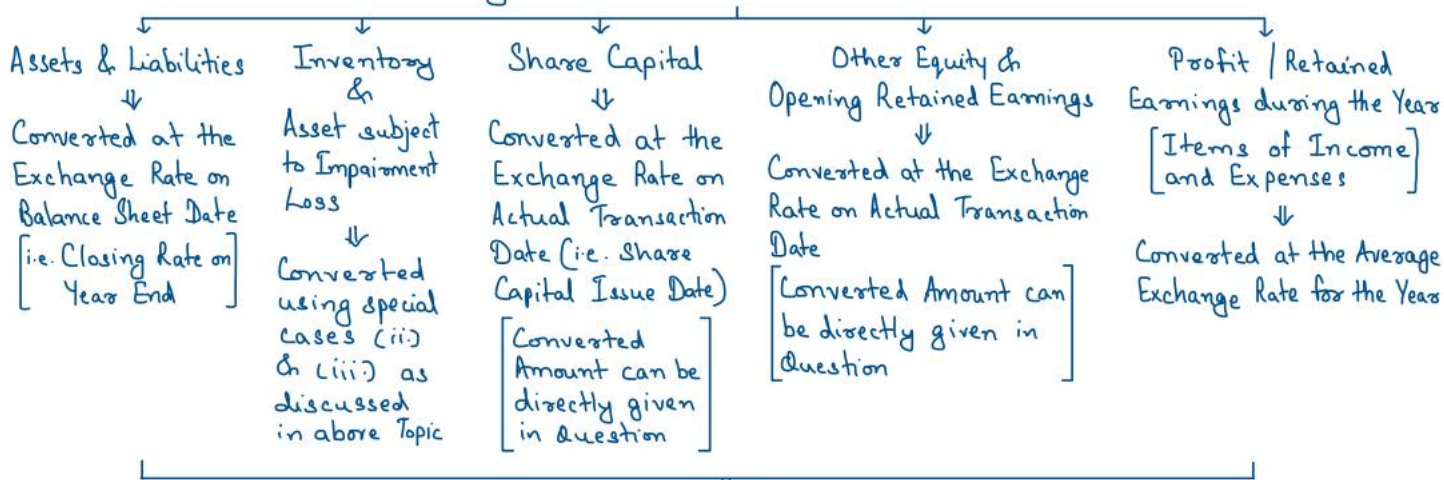 Assets & Liabilities
⇓
Converted at the
Exchange Rate on
Balance Sheet Date
[i.e. Closing Rate on
Year End]
Inventory
&
Asset subject
to Impairment
Loss
⇓
Converted
using special
cases (ii.)
& (iii.) as
discussed
in above Topic
Share Capital
⇓
Converted at the
Exchange Rate on
Actual Transaction
Date (i.e. Share
Capital Issue Date)
[Converted
Amount can be
directly given
in Question]
Other Equity &
Opening Retained Earnings
⇓
Converted at the Exchange
Rate on Actual Transaction
Date
[Converted Amount can
be directly given in
Question]
Profit / Retained
Earnings during the Year
[Items of Income
and Expenses]
⇓
Converted at the Average
Exchange Rate for the Year